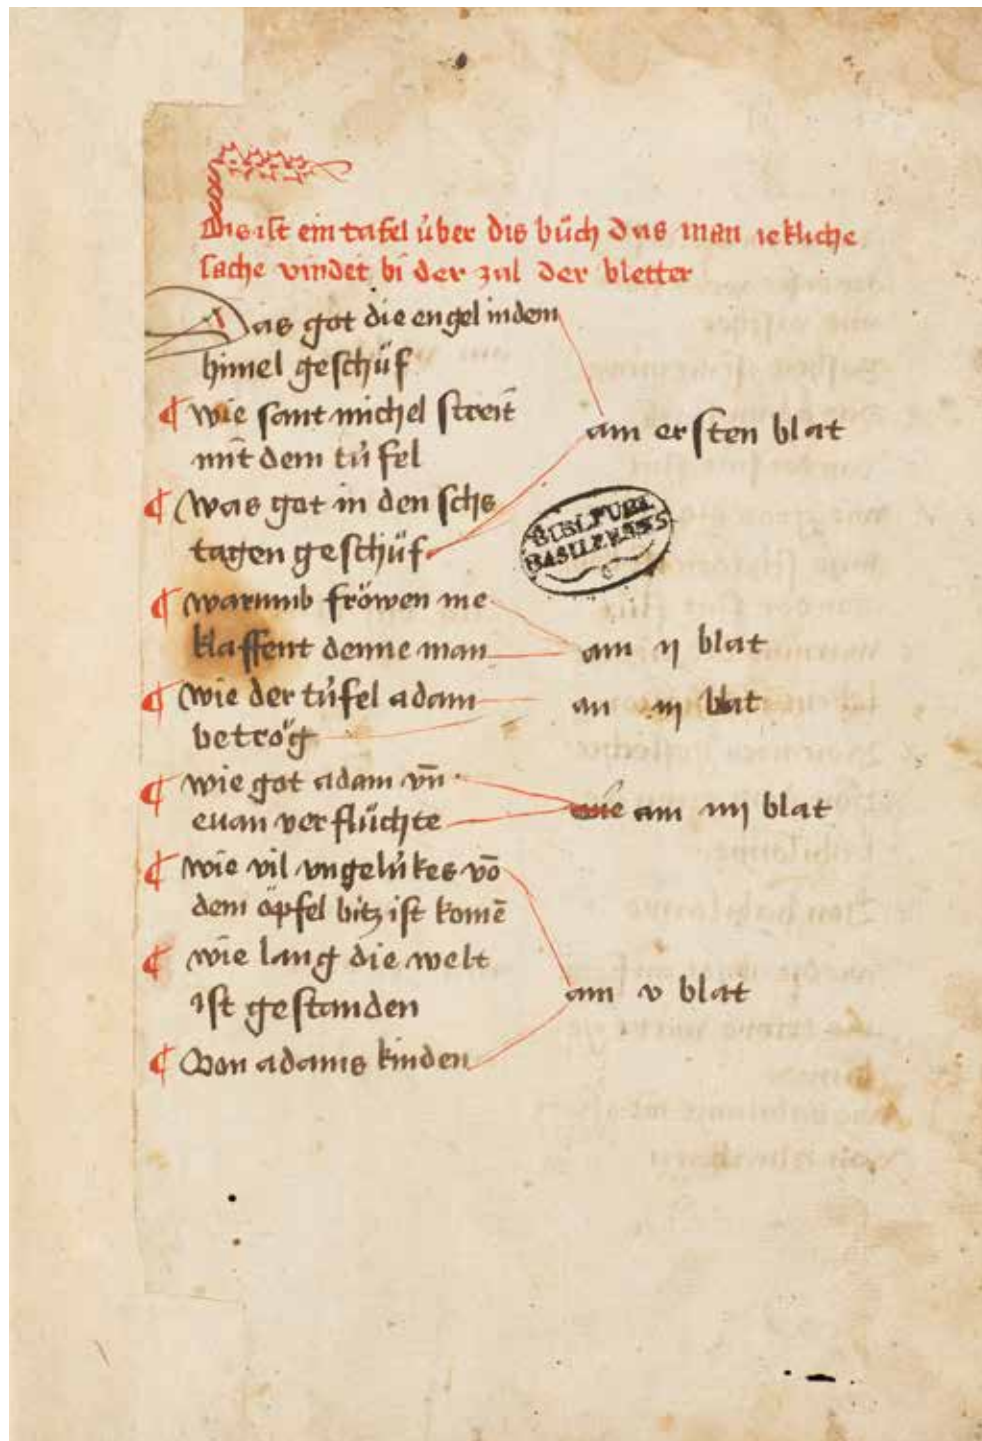 Dis ist ein tafel u̍ber dis bu̍ch das man iekliche
sache vindet bi der zal der bletter
Das got die engel in dem
himel geschu̍f
¶ wie sant michel streit
mit dem tu̍fel
am ersten blat
¶ Was got in den sehs
tagen geschu̍f
BIBL PUBL
BASILEENSIS
¶ warumb fröwen me
klaffent denne man
am ij blat
¶ Wie der tu̍fel adam
betrög
an iij blat
¶ wie got adam vn̄
euan verflu̍chte
wie am iiij blat
¶ wie vil vngelu̍kes vō
dem öpfel bitz ist komē
¶ wie lang die welt
ist gestanden
am v blat
¶ Von adams kinden